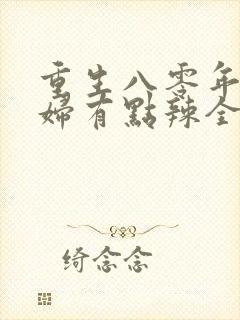 重生八零年
婦有點辣全
绮念念